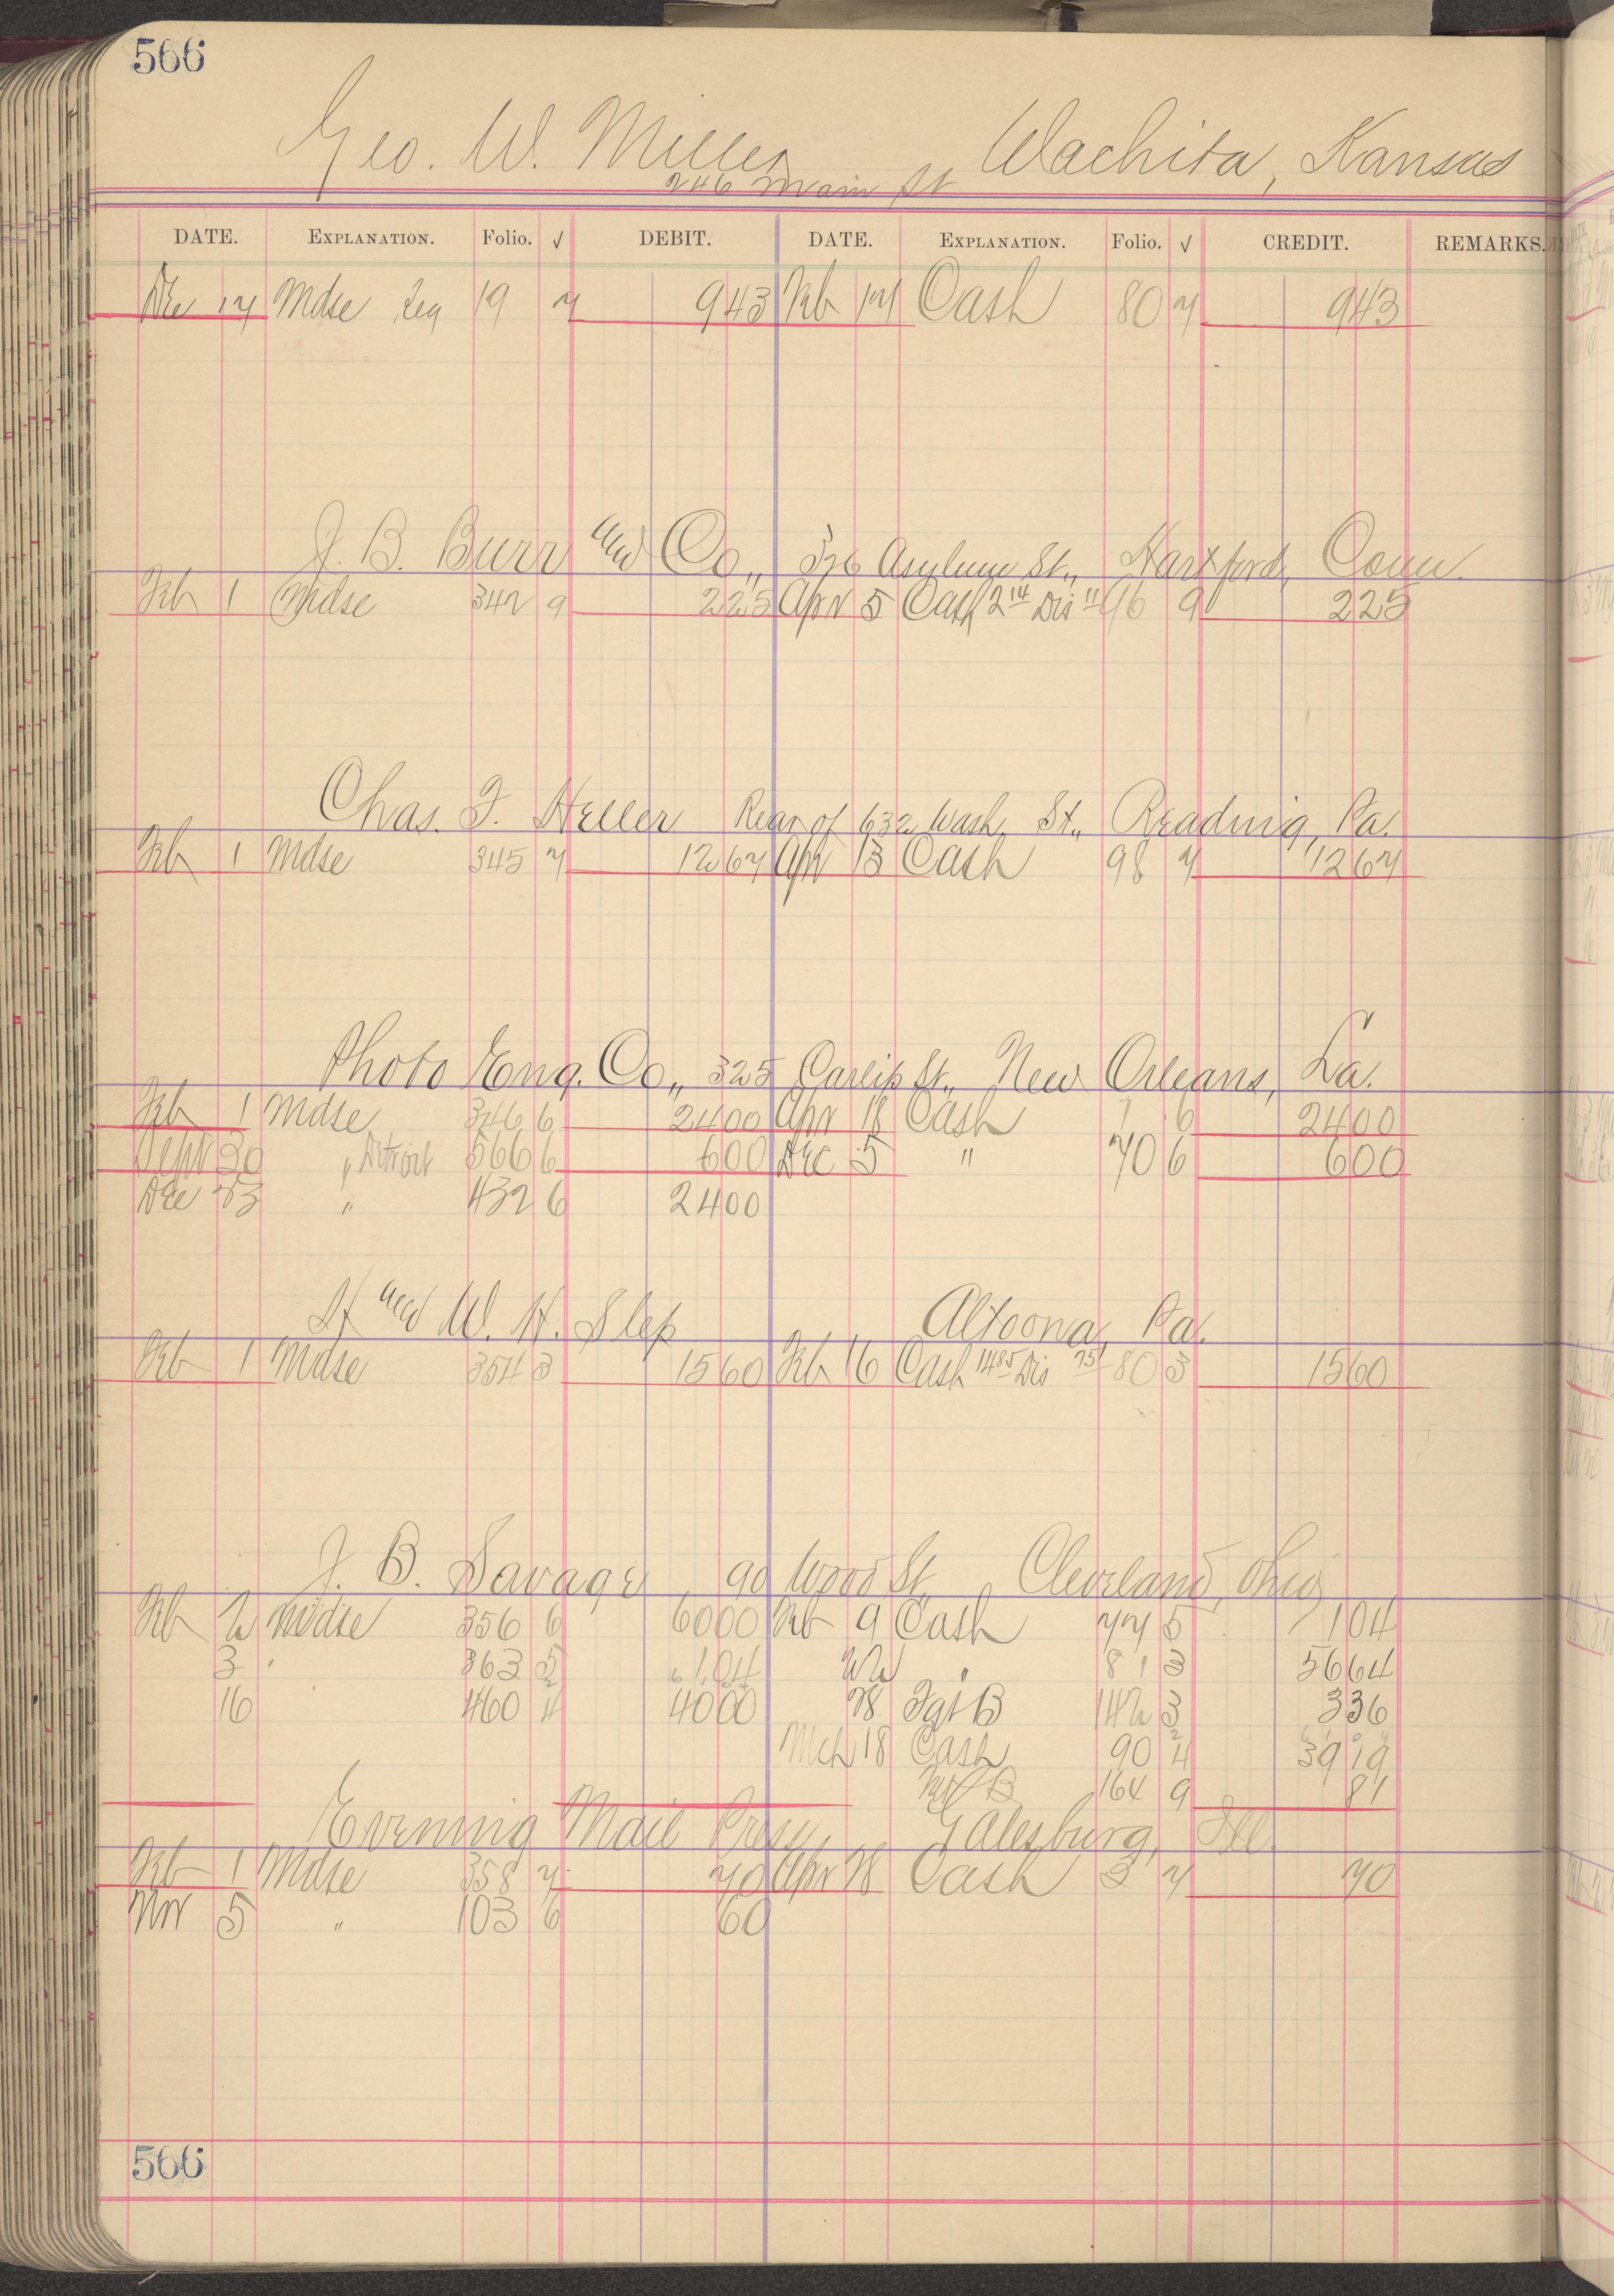 566
Geo. W. Miller Wachita, Kansas
246 Main St
DATE. EXPLANATION. Folio. √ DEBIT. DATE. EXPLANATION. Folio. √ CREDIT. REMARKS.
Dec 17 Mdse 19 7 943 Feb 17 Cash 80 7 943
J. B. Burr and Co., 336 Asylum St., Hartford, Conn.
Feb 1 Mdse 342 9 225 Apr 5 Cash 2 14 Dis 11 96 9 225
Chas. F. Heller Rear of 632 Wash. St., Reading, Pa.
Feb 1 Mdse 345 7 1267 Apr 13 Cash 98 7 1267
Photo Eng. Co., 325 St., New Orleans, La.
Feb 1 Mdse 346 6 2400 Apr 18 Cash 1 6 2400
Sept 30 " Detroit 566 6 600 Dec 5 " 70 6 600
Dec 23 " 432 6 2400
H and W. H. Slep Altoona, Pa.
Feb 1 Mdse 354 3 1560 Feb 16 Cash 1485 Dis 75 80 3 1560
J. B. Savage, 90 Wood St. Cleveland, Ohio
Feb 2 Mdse 356 6 6000 Feb 9 Cash 77 5 104
3 " 363 5 104 " 81 3 5664
16 460 4 4000 28 B 142 3 336
Mch 18 Cash 90 4 3919
B 164 9 81
Evening Mail Press, Galesburg, Ill.
Feb 1 Mdse 358 7 70 Apr 28 Cash 3 7 70
Nov 5 " 103 6 60
566